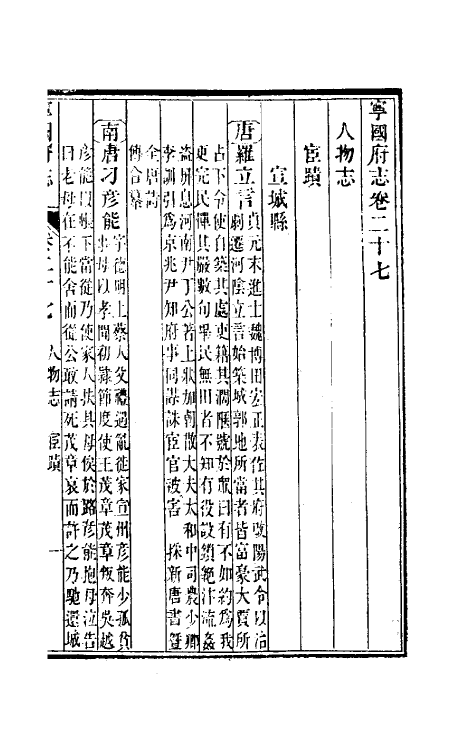 寧國府志卷二十七
人物志
宦蹟
宣城縣
唐羅立言貞元末進士魏博田宏正表佐其府改陽武令以治
劇遷河陰立言始築城郭地所當者皆富豪大賈所
占下令使自築其處吏籍其濶隘號於眾曰有不如約為我
更完民憚其嚴數旬畢民無田者不知有役設鎖絕汴流姦
盜屏息河南尹丁公著上狀加朝散大夫太和中司農少卿
李訓引為京兆尹知府事同謀誅宦官被害 採新唐書曁
全唐詩
傳合纂
南唐刁彥能字德明上蔡人父禮遇亂徙家宣州彥能少孤貧
事母以孝聞初隸節度使王茂章茂章叛奔吳越
彥能以帳下當從乃使家人扶其母候於路彥能抱母泣告
曰老母在不能舍而從公敢請死茂章哀而許之乃馳還城
寧國府志 卷二十七 人物志 宦蹟 一